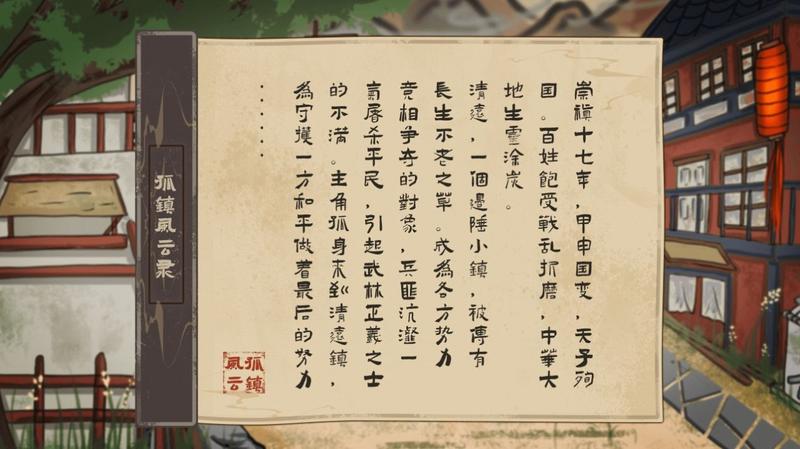 崇禎十七年，甲申国变，天子殉
国。百姓飽受戰乱折磨，中華大
地生靈涂炭。
清遠，一個邊陲小鎮，被傳有
長生不老之草。成為各方势力
竞相争夺的對象，兵匪沆瀣一
氣屠杀平民，引起武林正義之士
的不满。主角孤身来到清遠鎮，
為守護一方和平做着最后的努力
......
孤鎮風云录
孤鎮
風云